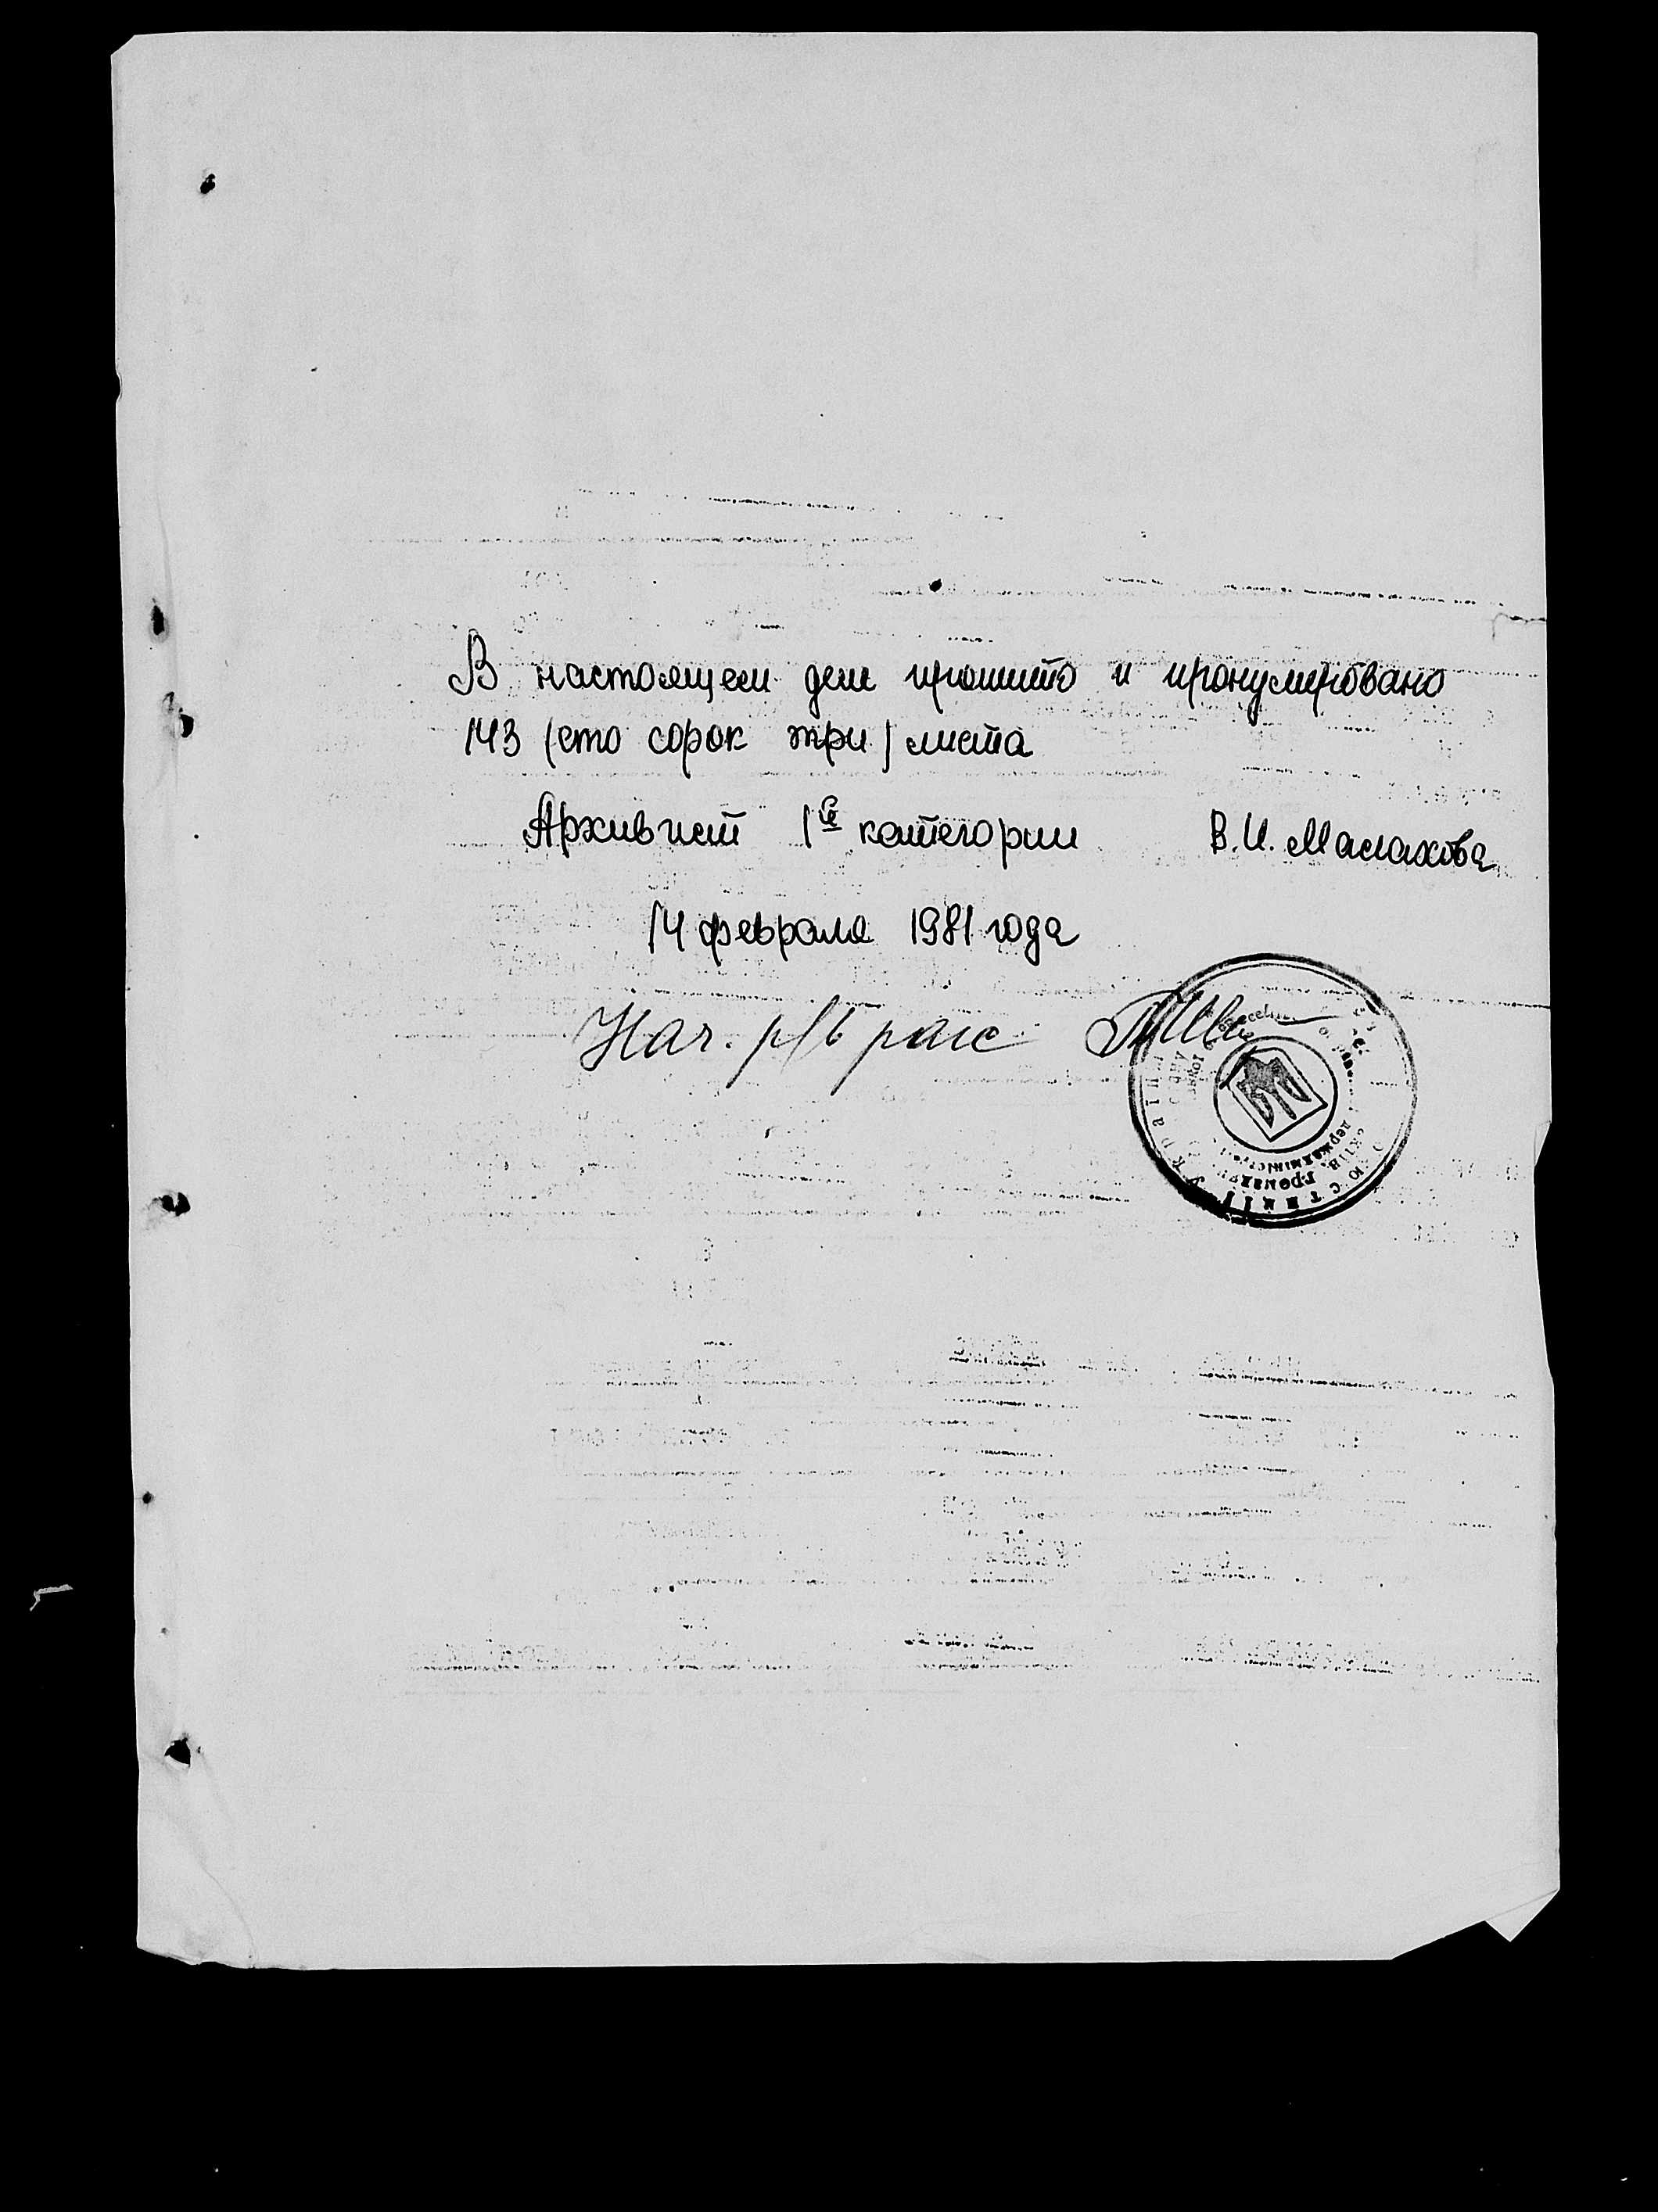 В настоящем деле прошито и пронумеровано
143 (сто сорок три) листа
Архивист 1ой категории В.И. Малахова
14 февраля 1981 года
Нач.
України
юстиції